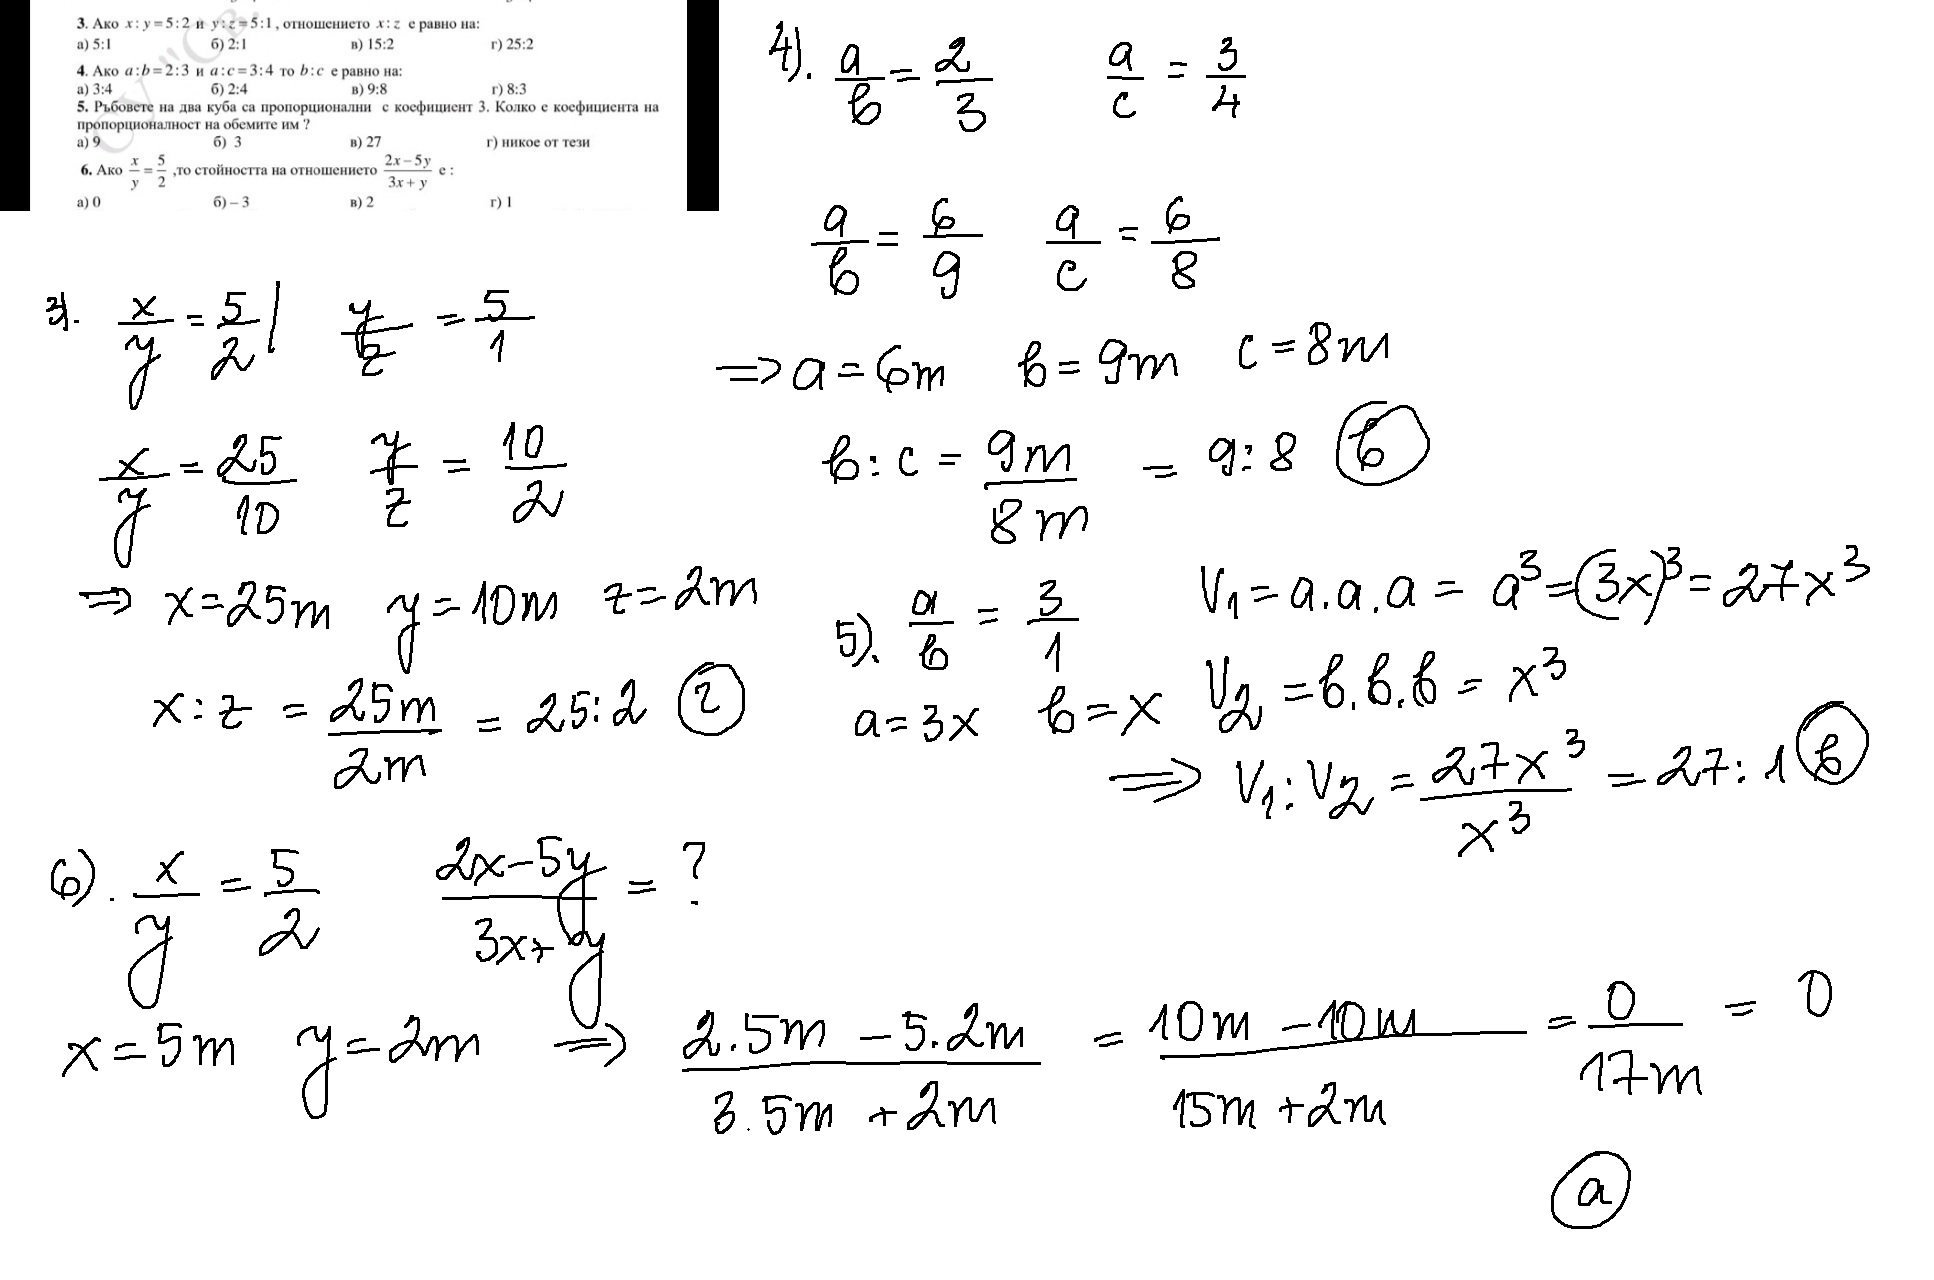 3. Ако x : y = 5 : 2 и y : z = 5 : 1 , отношението x : z е равно на:
а) 5:1 б) 2:1 в) 15:2 г) 25:2
4. Ако a : b = 2 : 3 и a : c = 3 : 4 то b : c е равно на:
а) 3:4 б) 2:4 в) 9:8 г) 8:3
5. Ръбовете на два куба са пропорционални с коефициент 3. Колко е коефициента на
пропорционалност на обемите им ?
а) 9 б) 3 в) 27 г) никое от тези
6. Ако x/y = 5/2 ,то стойността на отношението (2x − 5y)/(3x + y) е :
а) 0 б) – 3 в) 2 г) 1
3). x/y = 5/2 | y/z = 5/1
x/y = 25/10 y/z = 10/2
⇒ x = 25m y = 10m z = 2m
x : z = 25m/2m = 25:2 г
4). a/в = 2/3 a/c = 3/4
a/в = 6/9 a/c = 6/8
⇒ a = 6m в = 9m c = 8m
в : c = 9m/8m = 9:8 в
5). a/в = 3/1
a = 3x в = x
V1 = a.a.a = a³ = (3x)³ = 27x³
V2 = в.в.в = x³
⇒ V1 : V2 = 27x³/x³ = 27:1 в
6). x/y = 5/2 (2x−5y)/(3x+y) = ?
x = 5m y = 2m ⇒ (2.5m − 5.2m)/(3.5m + 2m) = (10m − 10m)/(15m + 2m) = 0/17m = 0
а